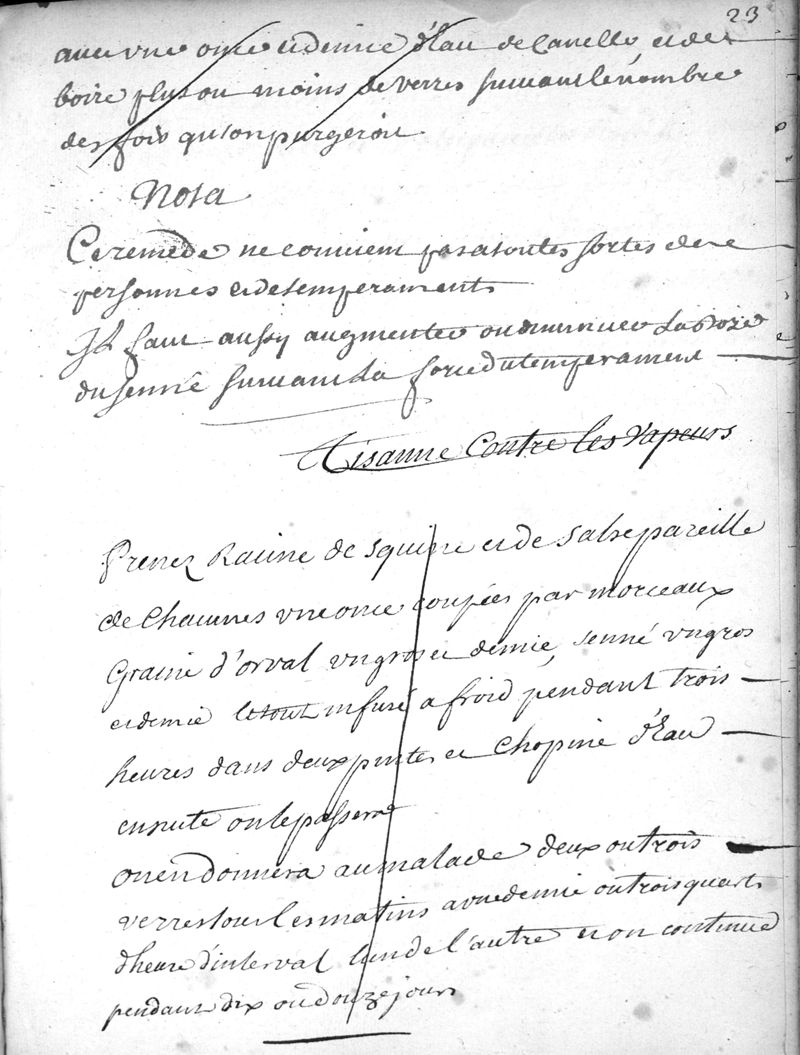 23
avec une once et demie d'Eau de Canelle, et de
boire plus ou moins de verres suivant le nombre
des fois qu'on purgeroit
Nota
Ce remede ne convient pas a toutes sortes de
personnes et de temperaments
Il faut aussy augmenter ou diminuer La Doze
du senné suivant La force du temperament
Tisanne Contre les Vapeurs
Prenez Racine de squine et de Salsepareille
de Chacunes une once coupées par morceaux
Graine d'orval un gros et demie, senné un gros
et demie le tout infusé a froid pendant trois
heures dans deux pintes et Chopine d'Eau
ensuite on le passera
on en donnera au malade deux ou trois
verres tous les matins a une demie ou trois quarts
d'heure d'interval l'un de l'autre et on continue
pendant dix ou douze jours